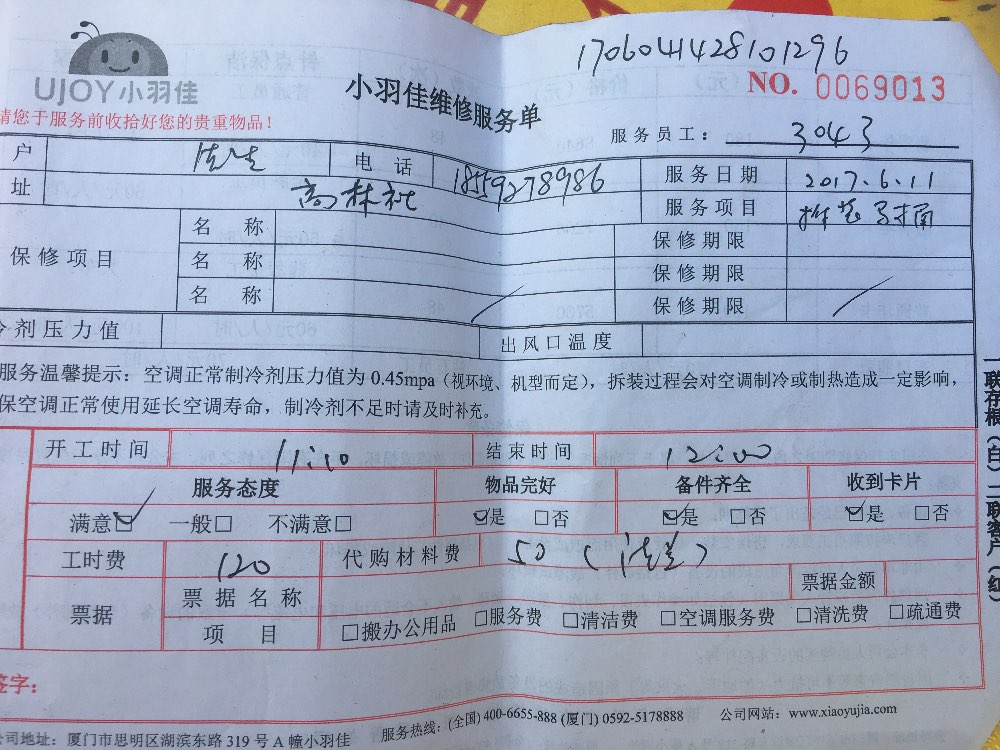 1706041428101296
UJOY小羽佳
小羽佳维修服务单
NO. 0069013
请您于服务前收拾好您的贵重物品！
服务员工： 3043
户 电话 18559278986 服务日期 2017.6.11
址 高林社 服务项目
保修项目 名称 保修期限
名称 保修期限
名称 保修期限
冷剂压力值 出风口温度
服务温馨提示：空调正常制冷剂压力值为 0.45mpa（视环境、机型而定），拆装过程会对空调制冷或制热造成一定影响，
保空调正常使用延长空调寿命，制冷剂不足时请及时补充。
开工时间 11:10 结束时间 12:00
服务态度 物品完好 备件齐全 收到卡片
满意☑ 一般□ 不满意□ ☑是 □否 ☑是 □否 ☑是 □否
工时费 120 代购材料费 50
票据 票据名称 票据金额
项目 □搬办公用品 □服务费 □清洁费 □空调服务费 □清洗费 □疏通费
签字：
公司地址：厦门市思明区湖滨东路 319 号 A 幢小羽佳 服务热线：(全国) 400-6655-888 (厦门) 0592-5178888 公司网站：www.xiaoyujia.com
一联存根（白）二联客户（红）